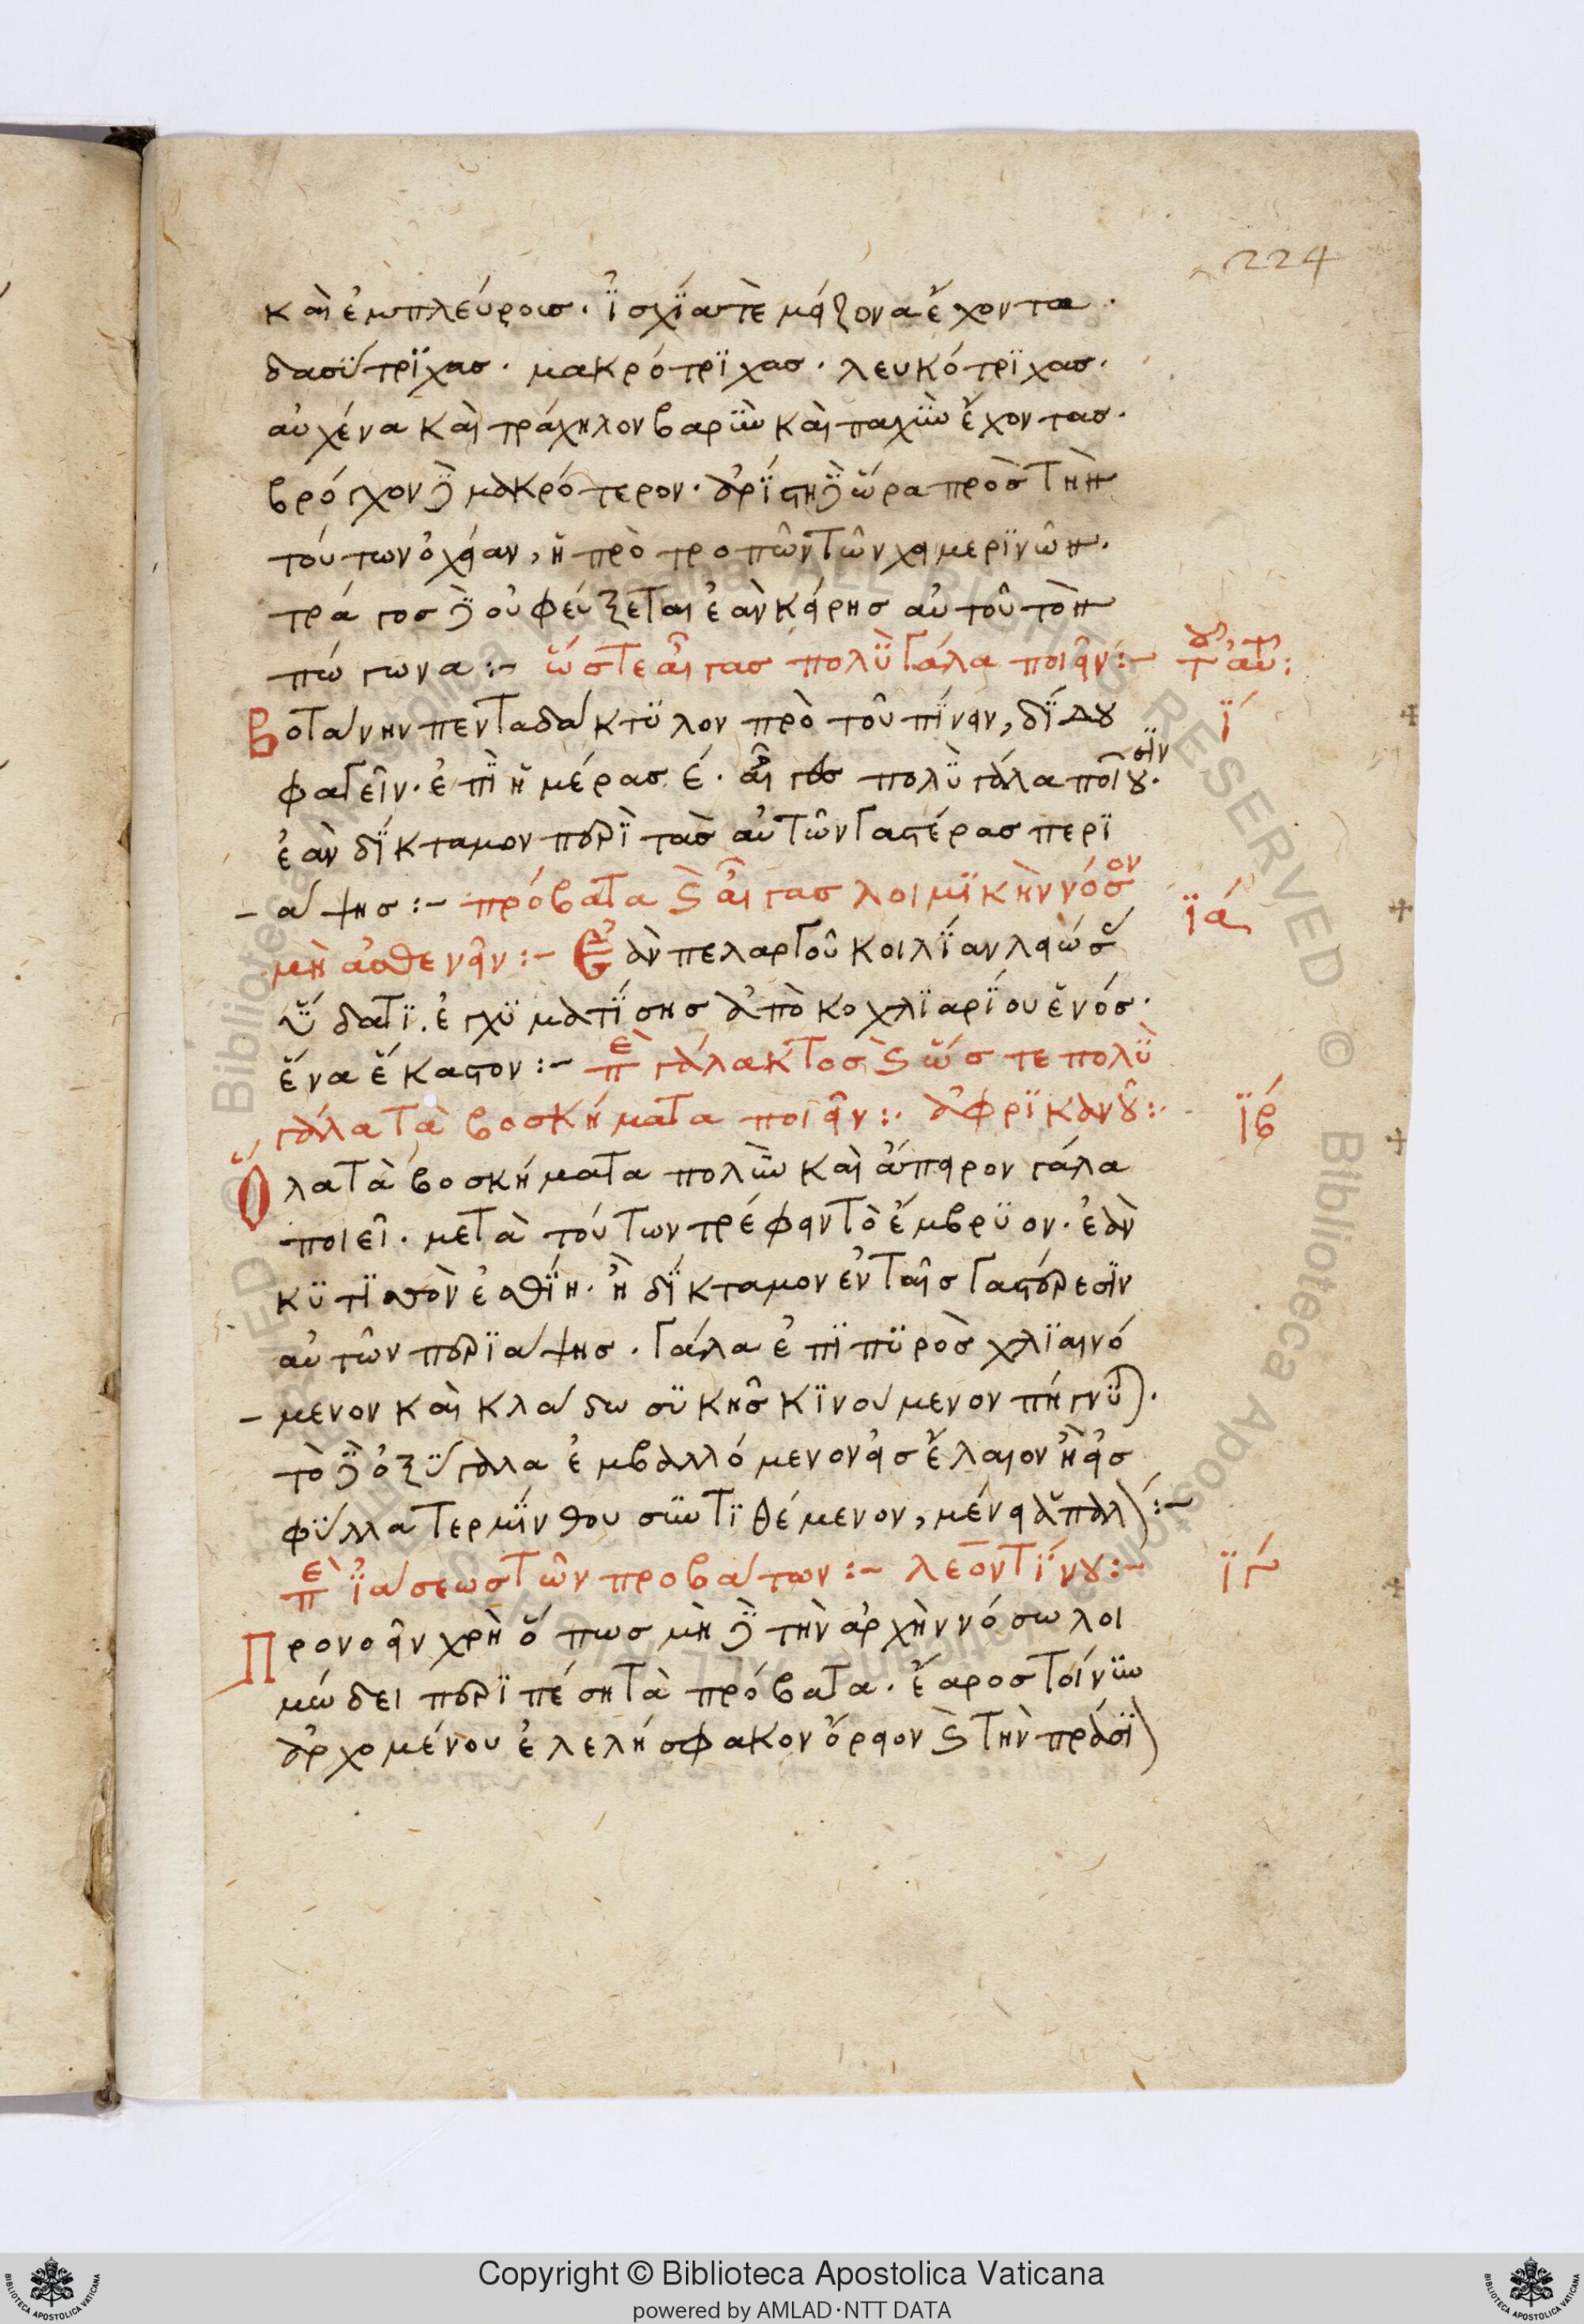 224
καὶ ἐμπλεύροισ. ἰσχία τὲ μείζονα ἔχοντα.
δασύτριχασ. μακρότριχασ. λευκότριχασ.
αὐχένα καὶ τράχηλον βαρὺν καὶ παχὺν ἔχοντασ.
βρόγχον δὲ μακρότερον. ἀρίστη δὲ ὥρα πρὸσ τὴν
τούτων ὀχείαν, ἡ πρὸ τροπῶν τῶν χειμερινῶν.
τράγοσ δὲ οὐ φεύξεται ἐὰν κείρησ αὐτοῦ τὸν
πώγωνα :- ὥστε αἶγασ πολὺ γάλα ποιεῖν :- τοῦ αὐτ:
Βοτάνην πενταδάκτυλον πρὸ τοῦ πίνειν, δίδου ί
φαγεῖν. ἐπὶ ἡμέρασ έ. αἶγεσ πολὺ γάλα ποιοῦσιν.
ἐὰν δίκταμον περὶ τὰσ αὐτῶν γαστέρασ περι
-άψησ :- πρόβατα καὶ αἶγασ λοιμικὴν νόσον ιά
μὴ ἀσθενεῖν :- Ἐὰν πελαργοῦ κοιλίαν λειώσασ
ὕδατι. ἐγχυματίσησ ἀπὸ κοχλιαρίου ἑνόσ.
ἕνα ἕκαστον :- περὶ γάλακτοσ καὶ ὥστε πολὺ
γάλα τὰ βοσκήματα ποιεῖν :. ἀφρικανοῦ :. ιβ
Ὅλα τὰ βοσκήματα πολὺν καὶ ἄπειρον γάλα
ποιεῖ. μετὰ τούτων τρέφειν τὸ ἔμβρυον. ἐὰν
κύτισσὸν ἐσθίη. ἢ δίκταμον ἐν ταῖσ γαστέρεσιν
αὐτῶν περιάψησ. γάλα ἐπὶ πυρὸσ χλιαινό
-μενον καὶ κλάδω συκῆσ κινούμενον πήγνυται.
τὸ δὲ ὀξύγαλα ἐμβαλλόμενον εἰσ ἔλαιον ἢ εἰσ
φύλλα τερμίνθου συντιθέμενον, μένει ἁπαλ :-
περὶ ἰάσεωσ τῶν προβάτων :- λεοντίνου :- ιγ
Προνοεῖν χρὴ ὅπωσ μὴ δὲ τὴν ἀρχὴν νόσω λοι
μώδει περιπέση τὰ πρόβατα. ἔαροσ τοίνυν
ἀρχομένου ἐλελήσφακον ὄρειον καὶ τὴν πράσι
Copyright © Biblioteca Apostolica Vaticana
powered by AMLAD·NTT DATA